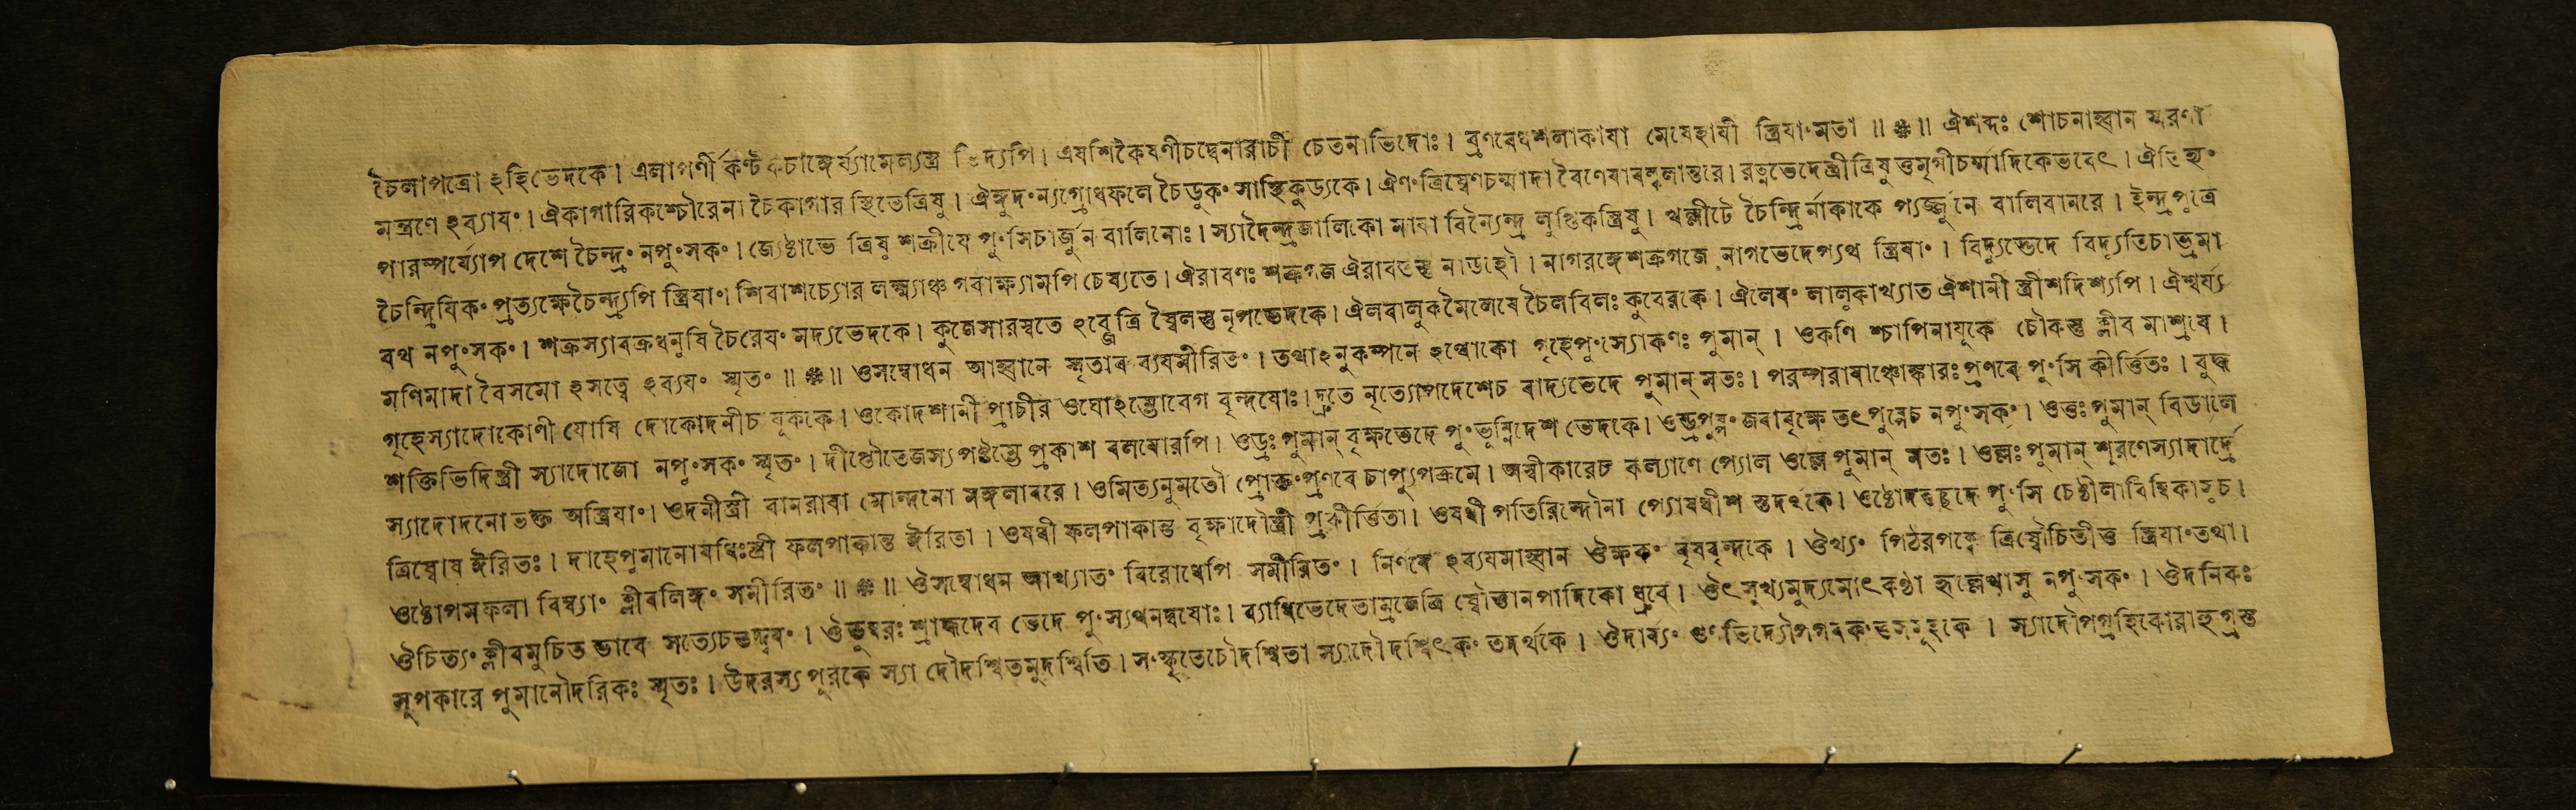 চৈলাপত্রো ঽহিভেদকে। এলাপর্ণী কণ্টকচাঙ্গের্য্যামেল্যন্ত্র ভিদ্যপি। এষণিকৈষণীচদ্বেনারাচী চেতনাভিদোঃ। ব্রণবেধশলাকাযা মেষেহাযী স্ত্রিযা°মতা ॥ ❋॥ ঐশব্দঃ শোচনাহ্বান স্মরণা
মন্ত্রণে ঽব্যায°। ঐকাগারিকশ্চৌরেনা চৈকাগার স্থিতেত্রিষু। ঐঙ্গুদ°ন্যগ্রোধফলে চৈডুক° সাস্থিকুড্যকে। ঐণ°ত্রিষ্বেণচর্ম্মাদা বৈণেযাবল্কলান্তরে। রত্নভেদেস্ত্রীত্রিষুত্তমৃগীচর্ম্মাদিকেভবেৎ। ঐতিহ্য°
পারম্পর্য্যোপ দেশে চৈন্দ্র° নপু°সক°। জ্যেষ্ঠাভে ত্রিষু শক্রীযে পু°সিচার্জুন বালিনোঃ। স্যাদৈন্দ্রজালিকো মাযা বিন্যৈন্দ্র লুপ্তিকস্ত্রিষু। খল্লীটে চৈন্দ্রির্নাকাকে প্যর্জ্জুনে বালিবানরে। ইন্দ্রপুত্রে
চৈন্দ্রিযিক° প্রত্যক্ষেচৈন্দ্র্যপি স্ত্রিযা°। শিবাশচ্যোর লক্ষ্ম্যাঞ্চ গবাক্ষ্যামপি চেষ্যতে। ঐরাবণঃ শক্রগজ ঐরাবতস্তু নাডহৌ। নাগরঙ্গেশক্রগজে নাগভেদেপ্যথ স্ত্রিযা°। বিদ্যুদ্ভেদে বিদ্যুতিচাভ্রমা
বথ নপু°সক°। শক্রস্যাবক্রধনুষি চৈরেয° মদ্যভেদকে। কুজেসারস্বতে ঽব্জেত্রি ষ্বৈলস্তু নৃপভেদকে। ঐলবালুকমৈলেষে চৈলবিলঃ কুবেরকে। ঐলেয° লালুকাখ্যাত ঐশানী স্ত্রীশদিশ্যপি। ঐশ্বর্য্য
মণিমাদা বৈসমো ঽসত্বে ঽব্যয° স্মৃত° ॥ ❋॥ ওসম্বোধন আহ্বানে স্মৃতাব ব্যযমীরিত°। তথাঽনুকম্পনে ঽথোকো গৃহেপু°স্যোকণঃ পুমান্। ওকণি শ্চাপিনাযুকে চৌকস্তু ক্লীব মাশ্রযে।
গৃহেস্যাদোকোণী যোষি দোকোদনীচ যূককে। ওকোদশানী প্রাচীর ওঘোঽম্ভোবেগ বৃন্দযোঃ। দ্রুতে নৃত্যোপদেশেচ বাদ্যভেদে পুমান্ মতঃ। পরম্পরাযাঞ্চোঙ্কারঃ প্রণবে পু°সি কীর্ত্তিতঃ। বুদ্ধ
শক্তিভিদিস্ত্রী স্যাদোজো নপু°সক° স্মৃত°। দীপ্তৌতেজস্যপষ্টম্ভে প্রকাশ বলযোরপি। ওড্রঃ পুমান্ বৃক্ষভেদে পু°ভূম্নিদেশ ভেদকে। ওড্রপুষ্প° জবাবৃক্ষে তৎপুষ্পেচ নপু°সক°। ওতুঃ পুমান্ বিডালে
স্যাদোদনোভক্ত অস্ত্রিযা°। ওদনীস্ত্রী বানরাযা মোন্দনো মঙ্গলাবরে। ওমিত্যনুমতৌ প্রোক্ত°প্রণবে চাপ্যুপক্রমে। অঙ্গীকারেচ কল্যাণে প্যোল ওল্লে পুমান্ মতঃ। ওল্লঃ পুমান্ শূরণেস্যাদার্দ্রে
ত্রিষ্বোষ ঈরিতঃ। দাহেপুমানোষধিঃস্ত্রী ফলপাকান্ত ঈরিতা। ওষধী ফলপাকান্ত বৃক্ষাদৌস্ত্রী প্রকীর্ত্তিতা। ওষধী পতিরিন্দৌনা প্যোষধীশ স্তদঽকে। ওষ্ঠোদন্তচ্ছদে পু°সি চেষ্ঠীলাবিম্বিকাসুচ।
ওষ্ঠোপমফলা বিম্ব্যা° ক্লীবলিঙ্গ° সমীরিত° ॥ ❋॥ ঔসম্বোধন আখ্যাত° বিরোধেপি সমীরিত°। নির্ণযে ঽব্যযমাহ্বান ঔক্ষক° বৃষবৃন্দকে। ঔখ্য° পিঠরপক্বে ত্রিষ্বৌচিতীতু স্ত্রিযা°তথা।
ঔচিত্য° ক্লীবমুচিত ভাবে সত্যেচতদ্দ্বয°। ঔডুম্বরঃ শ্রাদ্ধদেব ভেদে পু°স্যথনদ্বযোঃ। ব্যাধিভেদেতাম্রজেত্রি ষ্বৌত্তানপাদিকো ধ্রুবে। ঔৎসুখ্যমুদ্যমোৎকণ্ঠা হৃল্লেখাসু নপু°সক°। ঔদনিকঃ
সূপকারে পুমানৌদরিকঃ স্মৃতঃ। উদরস্যপূরকে স্যা দৌদশ্বিতমুদশ্বিতি। স°স্কৃতেচৌদশ্বিতা স্যাদৌদশ্বিৎক° তদর্থকে। ঔদার্য্য° গু°ভিদ্যৌপগবক°তসমূহকে। স্যাদৌপগ্রহিকোরাহুগ্রস্ত